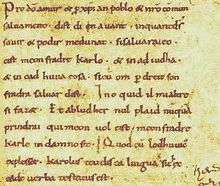 Pro dō amur & p xpian poblo & nr̄o comun
saluament. dist di en auant. inquantdſ
sauir & podir medunat. sisaluaraieo.
cist meon fradre karlo. & in adiudha.
& in cad huna cosa. sicū om p dreit son
fradra saluar dist. Ino quid il mialtre
si faz&. Et abludher nul plaid nūquā
prindrai qui meon uol cist. meonfradre
karle in damno sit. Quod cū lodhuuic
explesset. karolus teudisca lingua sic
eade uerba testatus est.